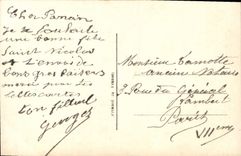 Cher Parrain
Je te souhaite
une bonne fête
Saint Nicolas
et t'envoie de
bons gros baisers
merci pour tes
Ton filleul
Georges
Monsieur Lamotte
ancien Notaire
2 Rue du Général
Lambert
Paris
VIIème